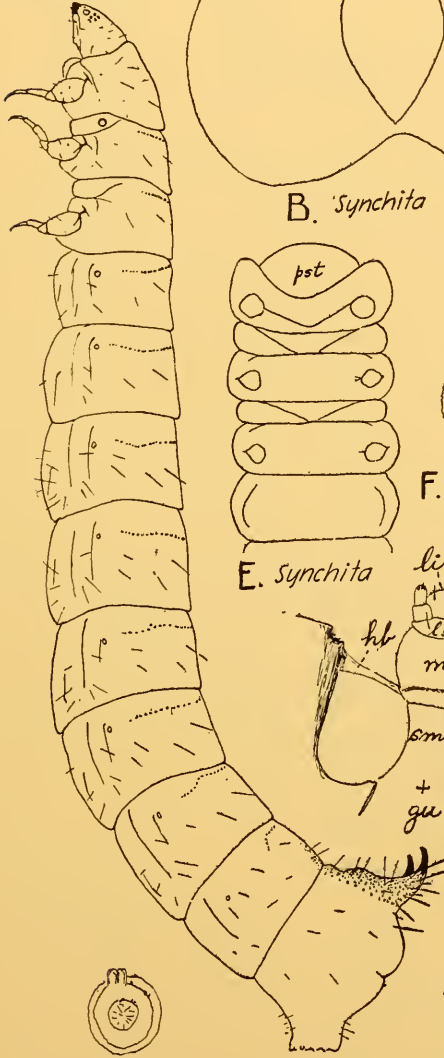 B. Synchita
pst
F.
E. Synchita
hb
sm
+
gu